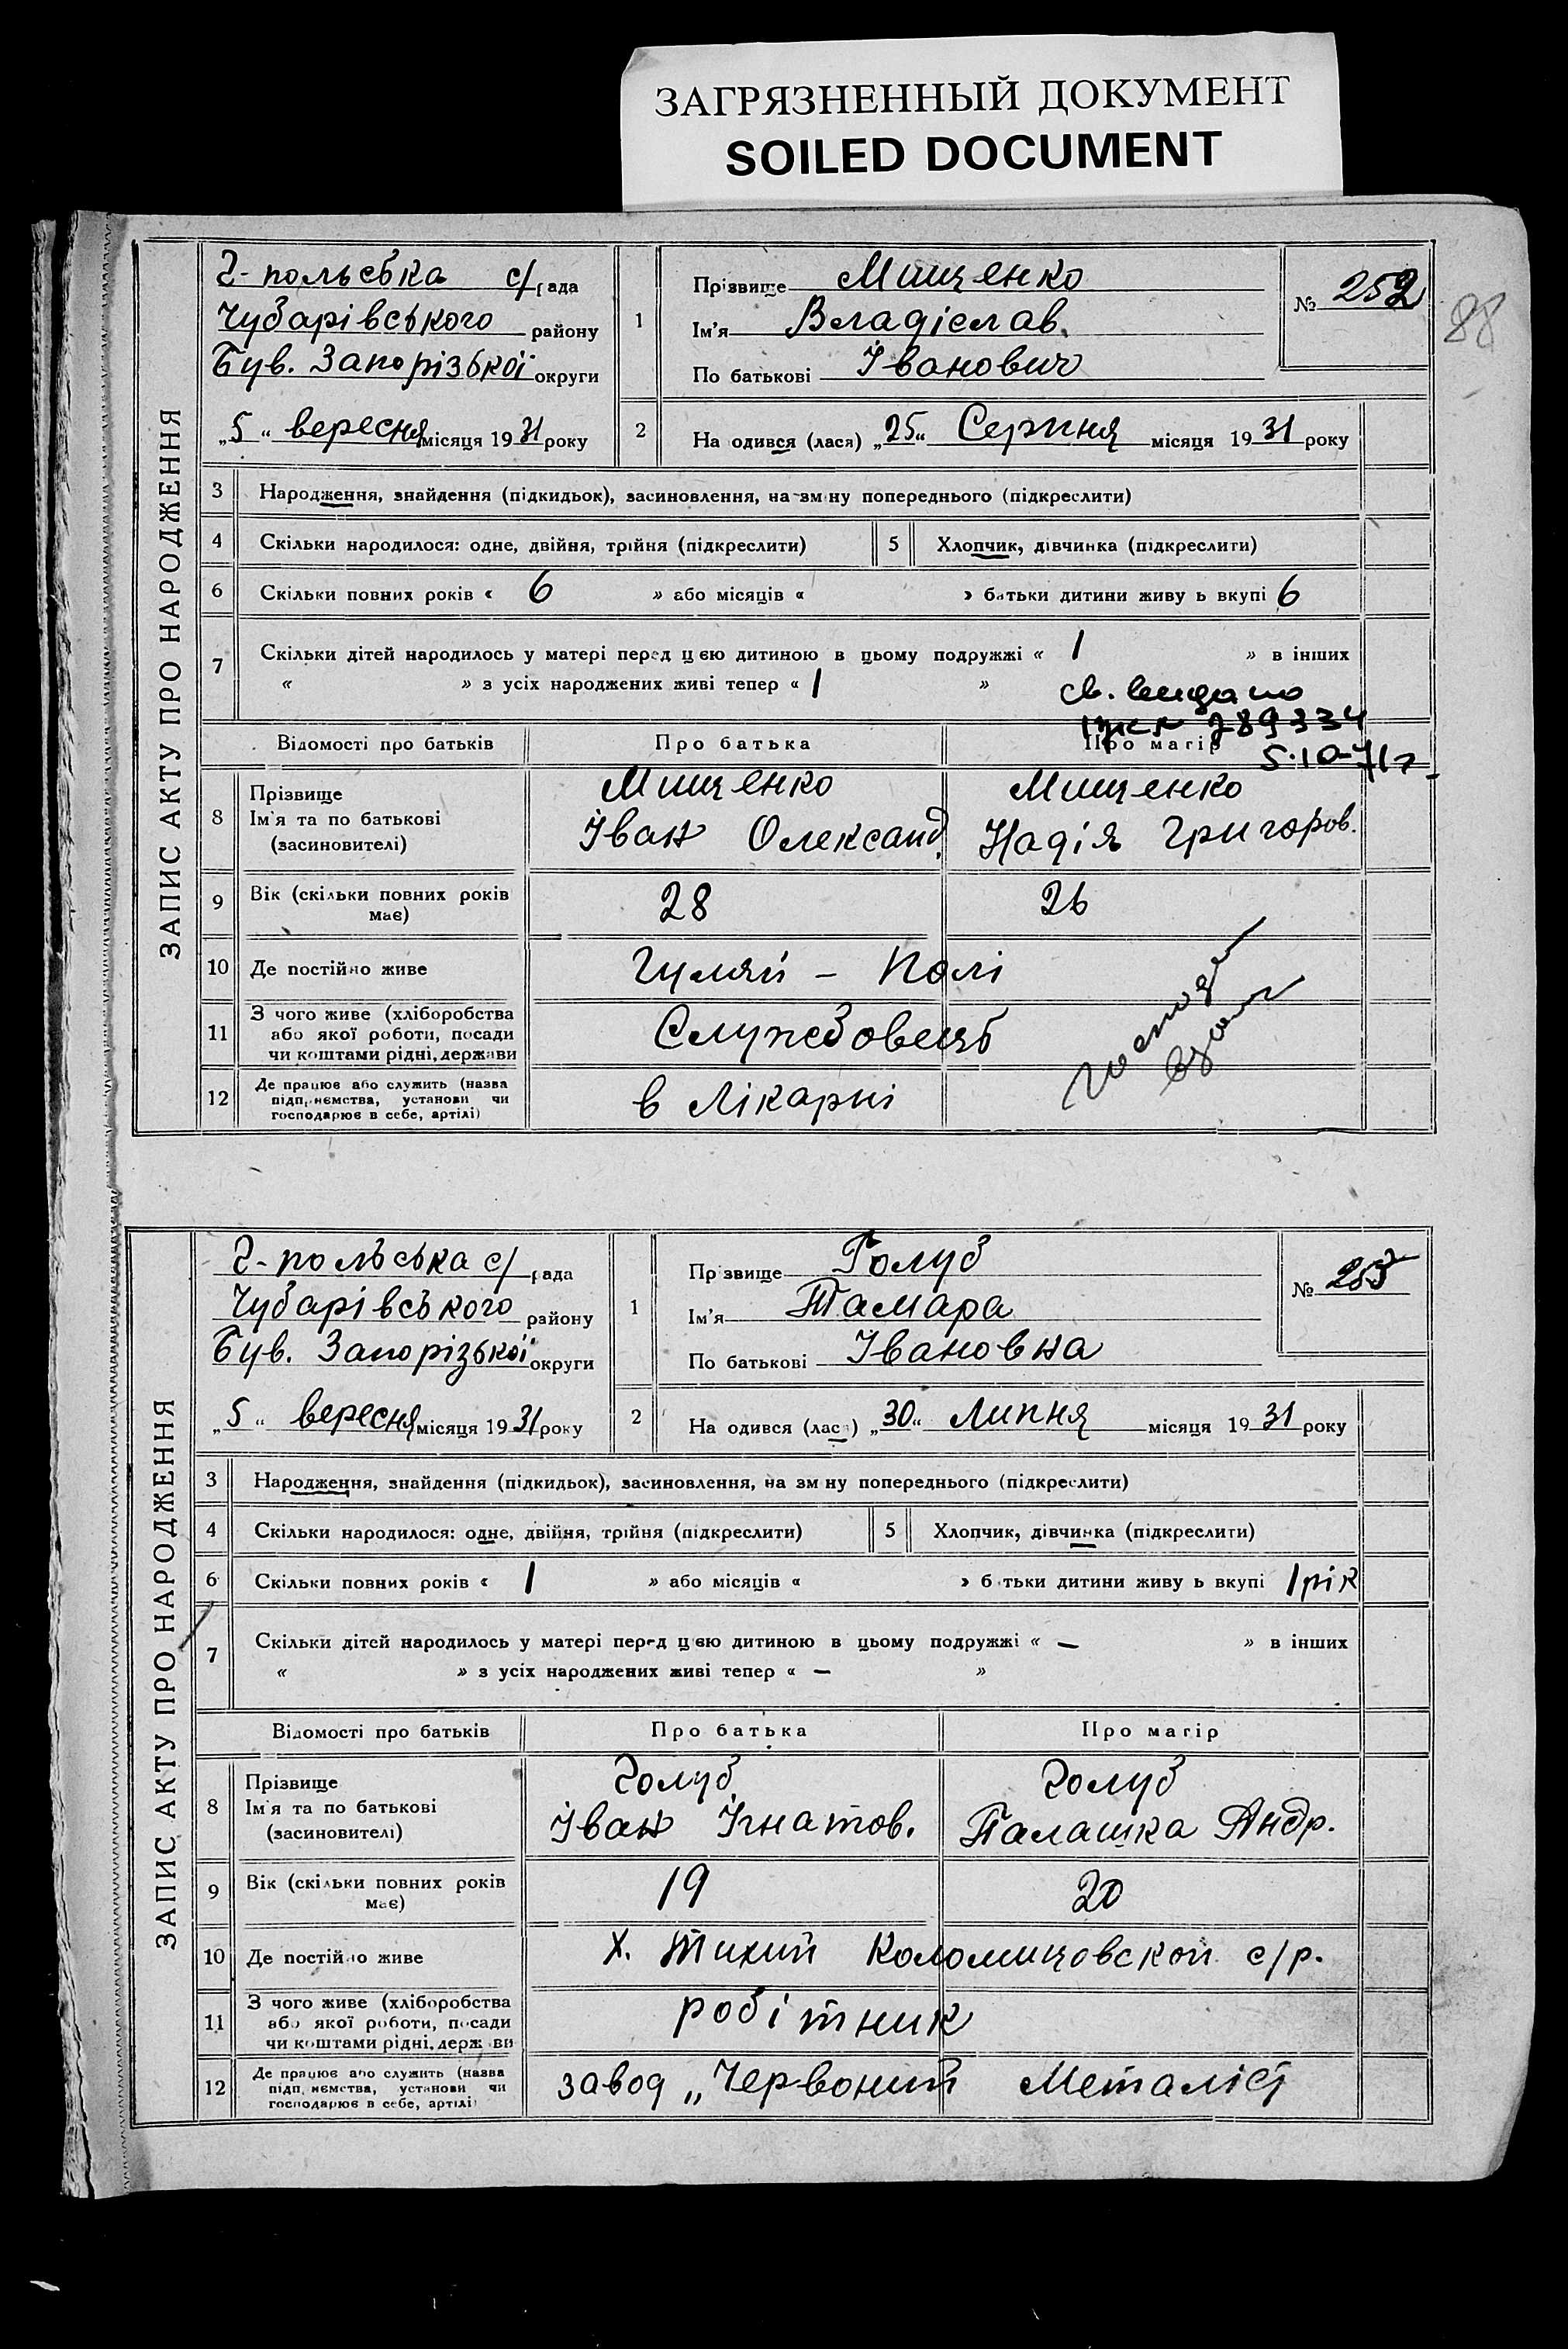 ЗАГРЯЗНЕННЫЙ ДОКУМЕНТ
SOILED DOCUMENT
88
ЗАПИС АКТУ ПРО НАРОДЖЕННЯ
Г-польська с/рада
Чубарівського району
Був. Запорізької округи
„5“ вересня місяця 1931 року
1
Прізвище Мищенко
Ім'я Владіслав
По батькові Іванович
№ 252
2
На одився (лася) „25“ Серпня місяця 1931 року
3 Народження, знайдення (підкидьок), засиновлення, на зміну попереднього (підкреслити)
4 Скільки народилося: одне, двійня, трійня (підкреслити)
5 Хлопчик, дівчинка (підкреслити)
6 Скільки повних років « 6 » або місяців « » батьки дитини живу ь вкупі 6
7 Скільки дітей народилось у матері перед цією дитиною в цьому подружжі « 1 » в інших
« » з усіх народжених живі тепер « 1 »
св. видано
789334
5.10-71г
Відомості про батьків
Про батька
Про матір
8 Прізвище
Ім'я та по батькові
(засиновителі)
Мищенко
Іван Олександ.
Мищенко
Надія Григоров.
9 Вік (скільки повних років
має)
28
26
10 Де постійно живе
Гуляй - Полі
11 З чого живе (хліборобства
або якої роботи, посади
чи коштами рідні, держави
Службовець
12 Де працює або служить (назва
підприємства, установи чи
господарює в себе, артілі)
в Лікарні
ЗАПИС АКТУ ПРО НАРОДЖЕННЯ
Г-польська с/рада
Чубарівського району
Був. Запорізької округи
„5“ вересня місяця 1931 року
1
Пр звище Голуб
Ім'я Тамара
По батькові Івановна
№ 253
2
На одився (лася) „30“ Липня місяця 1931 року
3 Народження, знайдення (підкидьок), засиновлення, на зм ну попереднього (підкреслити)
4 Скільки народилося: одне, двійня, трійня (підкреслити)
5 Хлопчик, дівчинка (підкреслити)
6 Скільки повних років « 1 » або місяців « » б тьки дитини живу ь вкупі 1 рік
7 Скільки дітей народилось у матері перед цією дитиною в цьому подружжі « — » в інших
« » з усіх народжених живі тепер « — »
Відомості про батьків
Про батька
Про матір
8 Прізвище
Ім'я та по батькові
(засиновителі)
Голуб
Іван Ігнатов.
Голуб
Палашка Андр.
9 Вік (скільки повних років
має)
19
20
10 Де постійно живе
Х. Тихий Коломицовской с/р.
11 З чого живе (хліборобства
або якої роботи, посади
чи коштами рідні, держ ви
робітник
12 Де працює або служить (назва
підп иємства, установи чи
господарює в себе, артілі)
завод „Червоний Металіст